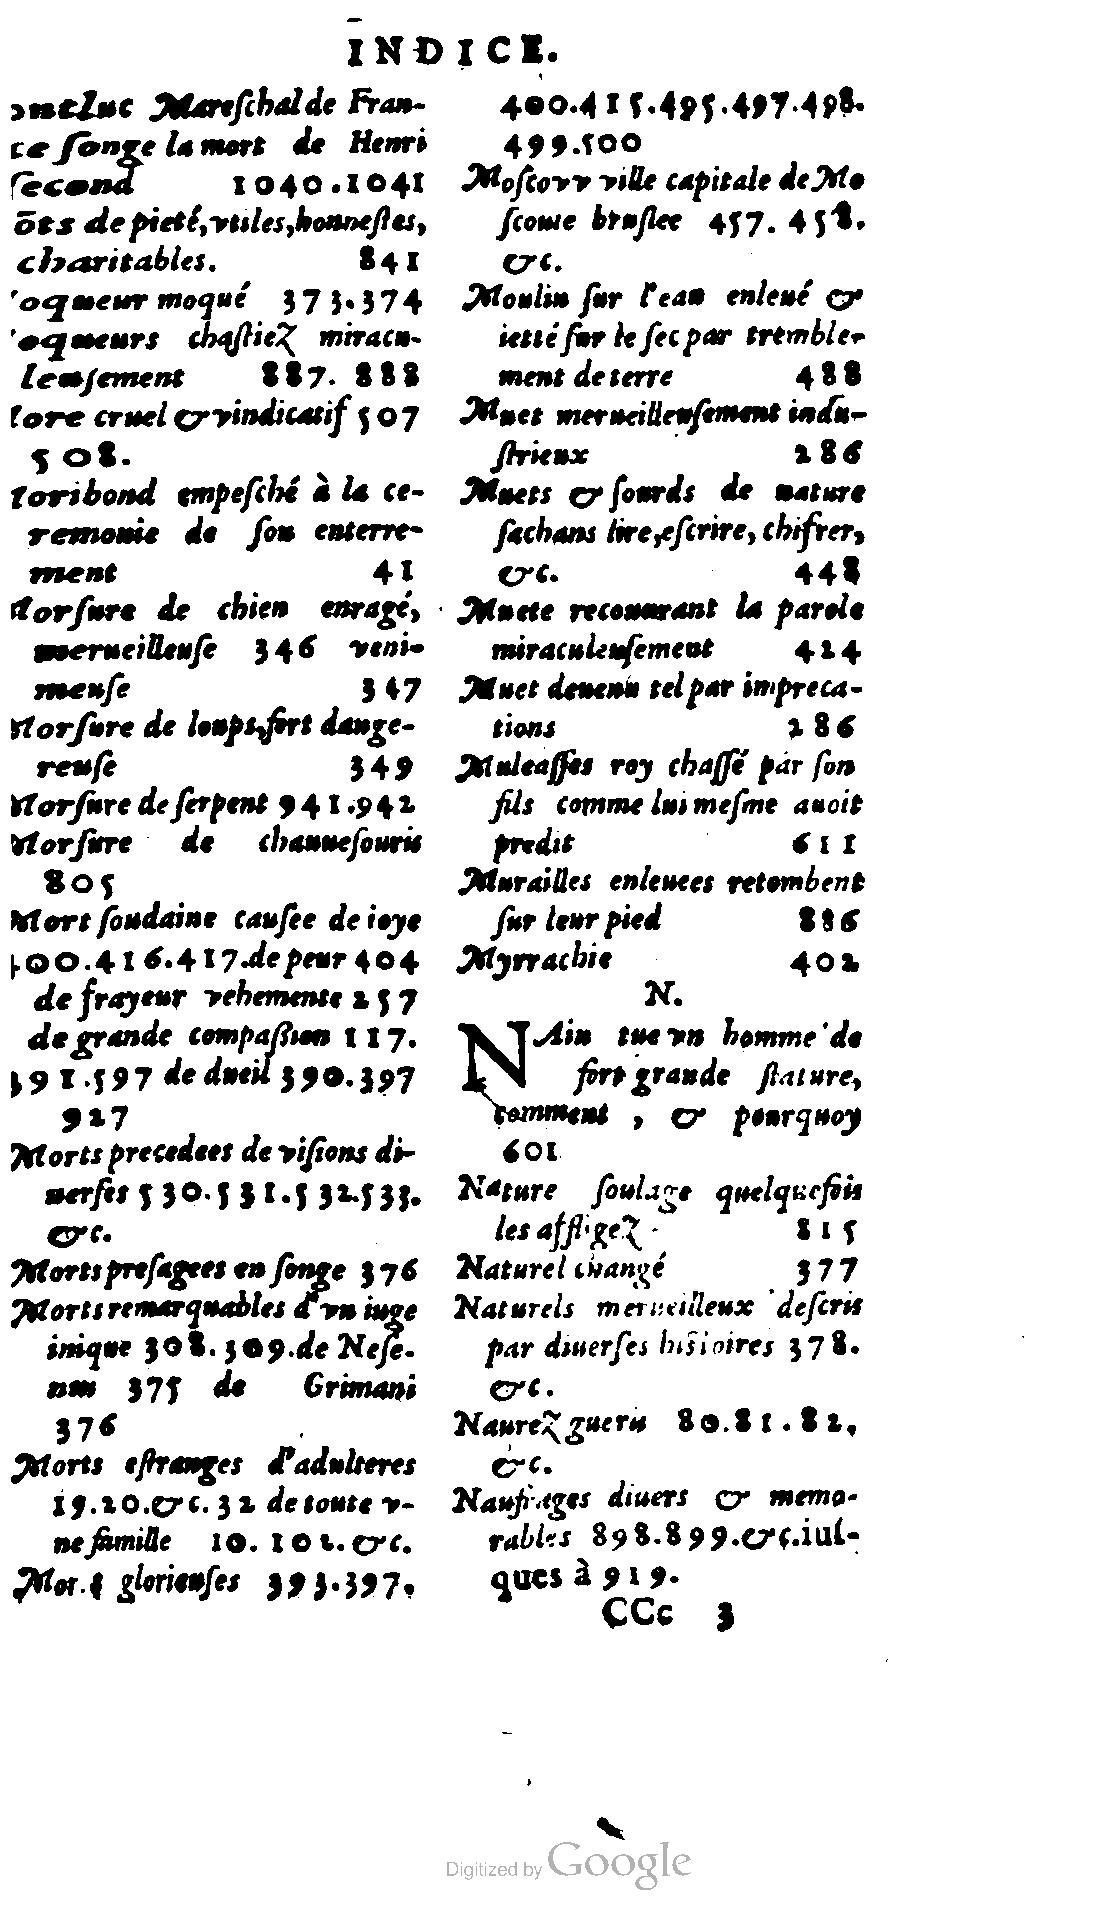 INDICE.
ontluc Mareſchal de Fran-
ce ſonge la mort de Henri
ſecond 1040.1041
õts de pieté, vtiles, honneſtes,
charitables. 841
oqueur moqué 373.374
oqueurs chaſtiez miracu-
leuſement 887. 888
ore cruel & vindicatif 507
508.
oribond empeſché à la ce-
remonie de ſon enterre-
ment 41
Morſure de chien enragé,
merueilleuſe 346 veni-
meuſe 347
Morſure de loups, fort dange-
reuſe 349
Morſure de ſerpent 941.942
Morſure de chauueſouris
805
Mort ſoudaine cauſee de ioye
400.416.417.de peur 404
de frayeur vehemente 257
de grande compaſſion 117.
391.597 de dueil 390.397
927
Morts precedees de viſions di-
uerſes 530.531.532.533.
&c.
Morts preſagees en ſonge 376
Morts remarquables d'vn iuge
inique 308.309.de Neſe-
nus 375 de Grimani
376
Morts eſtranges d'adulteres
19.20.&c. 32 de toute v-
ne famille 10. 102. &c.
Mor.s glorieuſes 393.397.
400.415.495.497.498.
499.500
Moſcovv ville capitale de Mo
ſcouie bruſlee 457. 458.
&c.
Moulin ſur l'eau enleué &
ietté ſur le ſec par tremble-
ment de terre 488
Muet merueilleuſement indu-
ſtrieux 286
Muets & ſourds de nature
ſachans lire, eſcrire, chifrer,
&c. 448
Muete recouurant la parole
miraculeuſement 424
Muet deuenu tel par impreca-
tions 286
Muleaſſes roy chaſſé par ſon
fils comme lui meſme auoit
predit 611
Murailles enleuees retombent
ſur leur pied 886
Myrrachie 402
N.
NAin tue vn homme de
fort grande ſtature,
comment, & pourquoy
601
Nature ſoulage quelquefois
les affligez 815
Naturel changé 377
Naturels merueilleux deſcris
par diuerſes hiſtoires 378.
&c.
Naurez gueris 80.81.82,
&c.
Naufrages diuers & memo-
rables 898.899.&c.iuſ-
ques à 919.
CCc 3
Digitized by Google